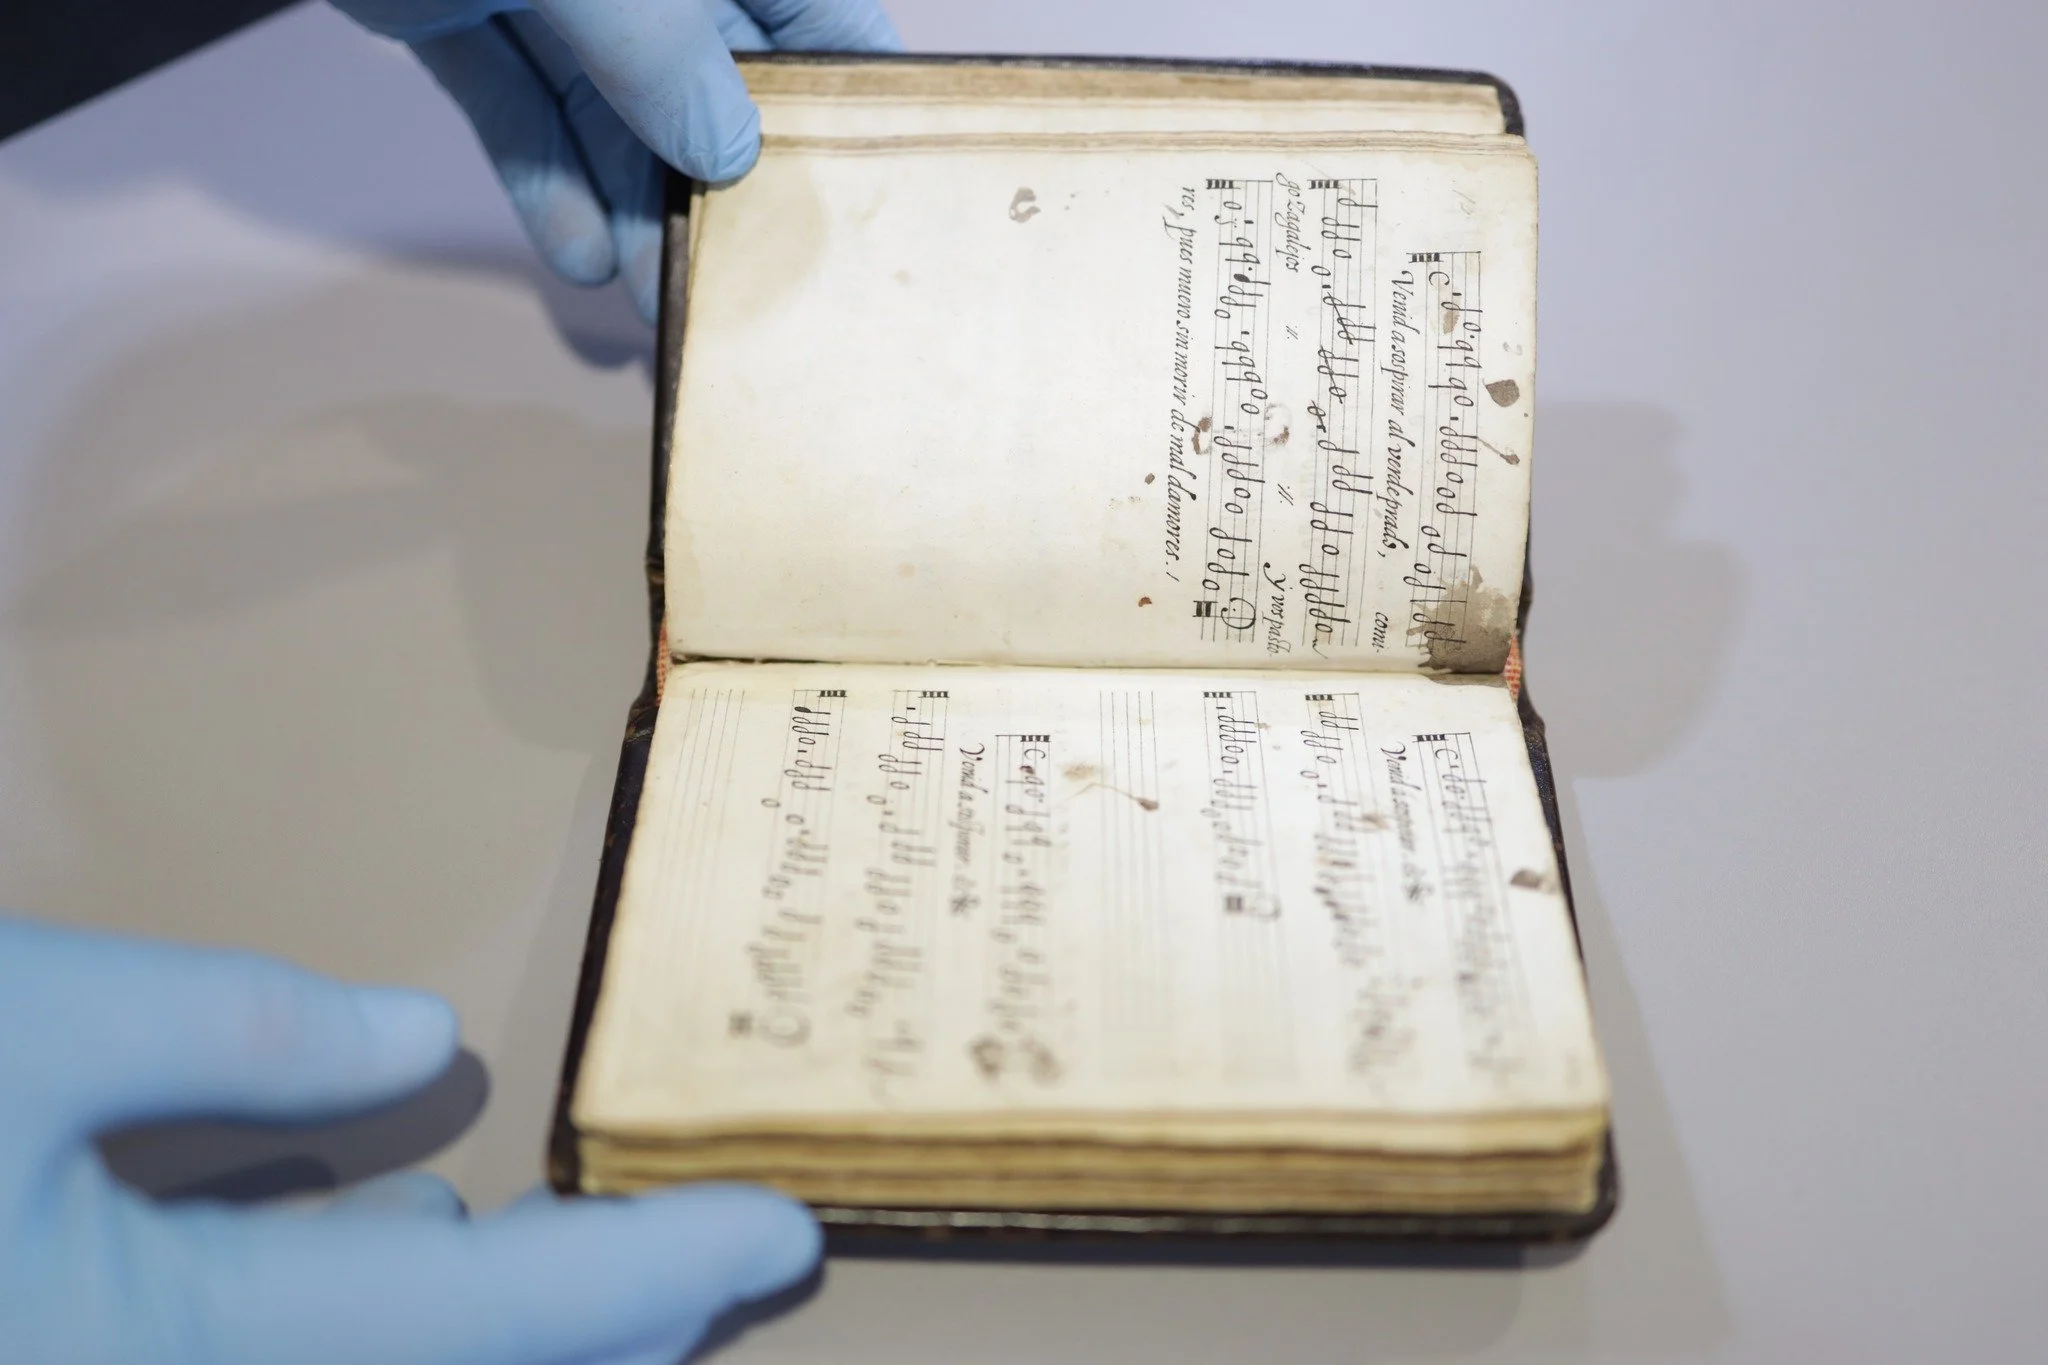 Venid a sospirar al verde prado, comi-
go Zagalejos .ij. .ij. y vos pasto-
res, pues muero sin morir de mal damores.
Venid a sospirar
Venid a sospirar